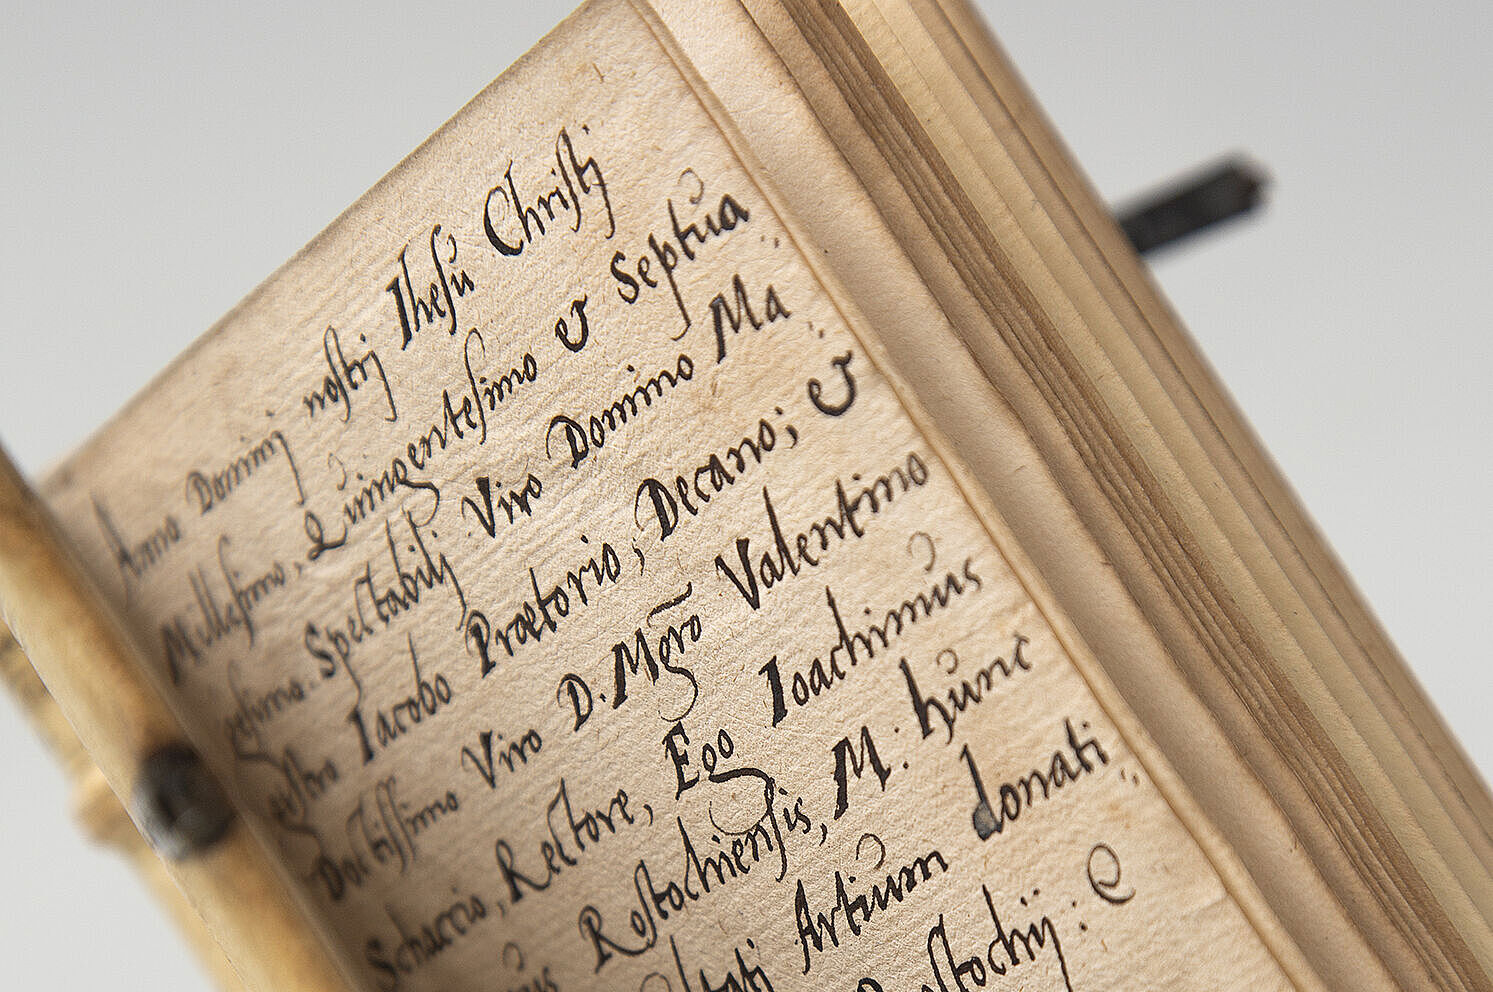 Anno Dominij nostrij Ihesu Christj
Millesimo, Quingentesimo & Septua
gesimo. Spectabilj Viro Domino Ma
gistro Iacobo Prætorio, Decano; &
Doctissimo Viro D. Mgro Valentino
Schaccio, Rectore, Ego Ioachimus
Rostochiensis, M: hunc
Artium donati
Rostochij: &